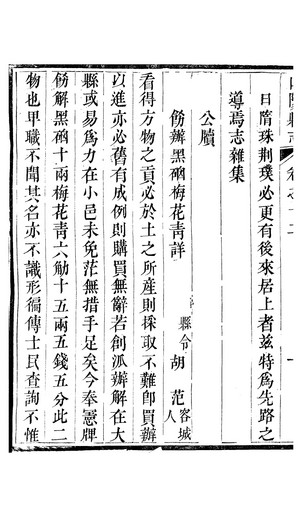 日隋珠荆璞必更有後來居上者兹特為先路之
導焉志雜集
公牘
飭辦黑硇梅花青詳
縣令胡范容城人
看得方物之貢必於土之所産則採取不難即買辦
以進亦必舊有成例則購買無辭若創派辦解在大
縣或易為力在小邑未免茫無措手足矣今奉憲牌
飭解黑硇十兩梅花青六觔十五兩五錢五分此二
物也甲職不聞其名亦不識形徧傳士民查詢不惟